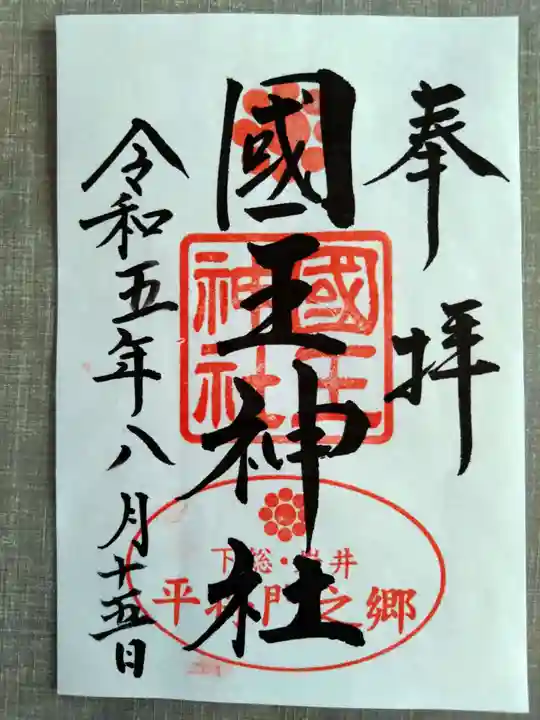 奉拝
國王神社
國王神社
下総・岩井
平将門之郷
令和五年八月十五日